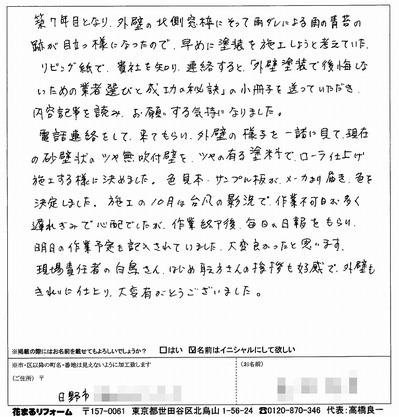 築7年目となり、外壁の北側窓枠にそって雨ダレによる雨の青苔の
跡が目立つ様になったので、早めに塗装を施工しようと考えていた。
リビング紙で、貴社を知り、連絡すると、「外壁塗装で後悔しな
いための業者選びと成功の秘訣」の小冊子を送っていただき、
内容記事を読み、お願いする気持になりました。
電話連絡をして、来てもらい、外壁の様子を一諸に見て、現在
の砂壁状のツヤ無吹付壁を、ツヤの有る塗料で、ローラ仕上げ
施工する様に決めました。色見本・サンプル板が、メーカより届き、色を
決定しました。施工の10月は台風の影況で、作業不可日が多く
遅れぎみで心配でしたが、作業終了後、毎日の日報をもらい、
明日の作業予定も記入されていました。大変良かったと思います。
現場責任者の白鳥さん、はじめ職方さんの挨拶も好感で、外壁も
きれいに仕上り、大変有がとうございました。
※掲載の際にはお名前を載せてもよろしいでしょうか? □はい ☑名前はイニシャルにして欲しい
※市・区以降の町名・番地は見えないように加工致します
(ご住所) 〒
(お名前)
日野市
花まるリフォーム 〒157-0061 東京都世田谷区北烏山1-56-24 ☎0120-870-346 代表:高橋良一